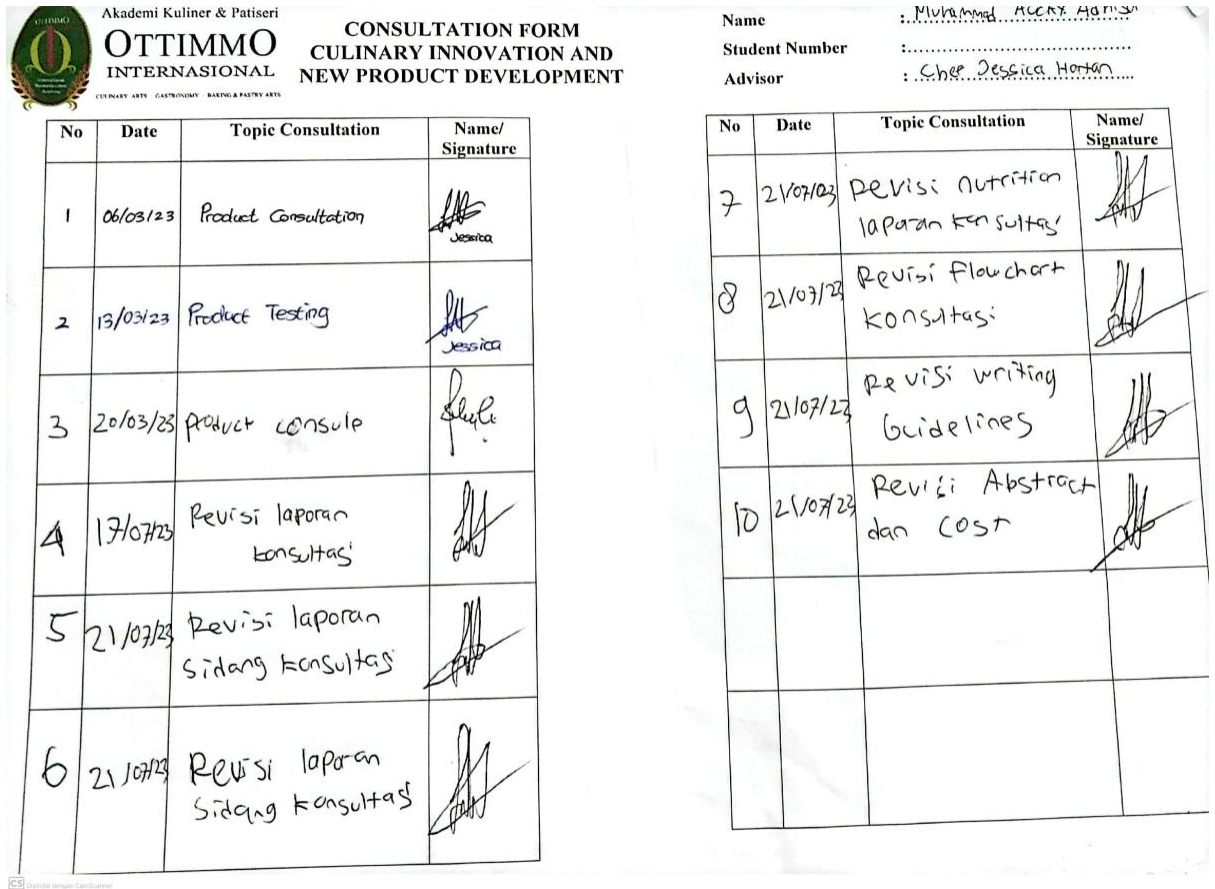 Akademi Kuliner & Patiseri
OTTIMMO
INTERNASIONAL
CULINARY ARTS · GASTRONOMY · BAKING & PASTRY ARTS
CONSULTATION FORM
CULINARY INNOVATION AND
NEW PRODUCT DEVELOPMENT
No Date Topic Consultation Name/
Signature
1 06/03/23 Product Consultation
Jessica
2 13/03/23 Product Testing
Jessica
3 20/03/23 product consule
4 17/07/23 Revisi laporan
konsultasi
5 21/07/23 Revisi laporan
sidang konsultasi
6 21/07/23 Revisi laporan
sidang konsultasi
Name : Muhammad
Student Number :
Advisor : Chef Jessica Hartan
No Date Topic Consultation Name/
Signature
7 21/07/23 Revisi nutrition
laporan konsultasi
8 21/07/23 Revisi Flowchart
konsultasi
9 21/07/23 Revisi writing
Guidelines
10 21/07/23 Revisi Abstract
dan cost
CS Dipindai dengan CamScanner